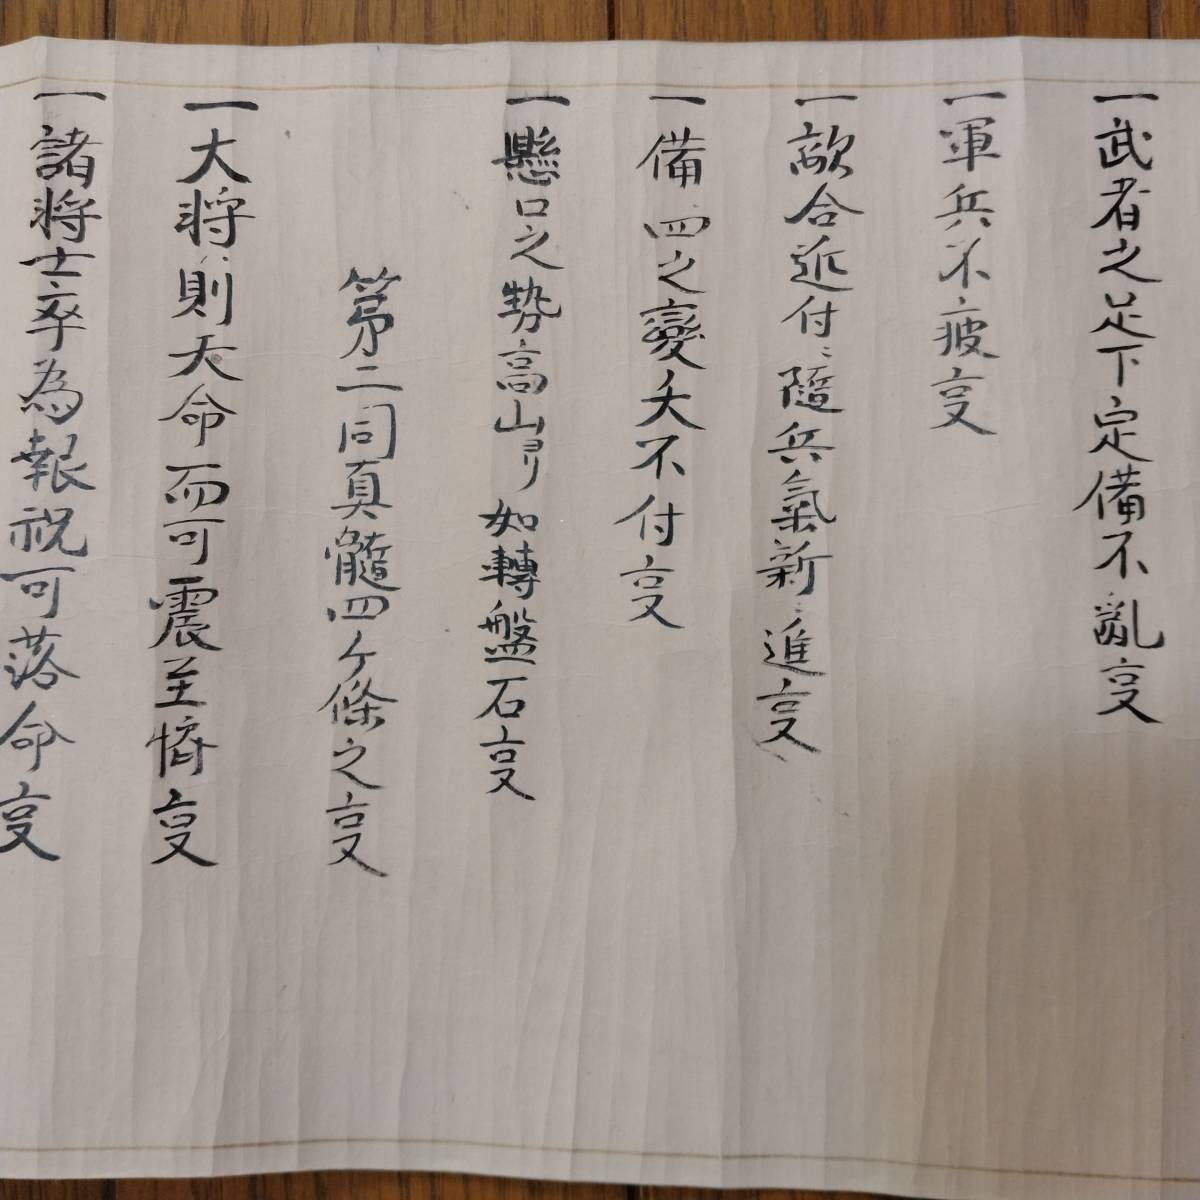 一武者之足下定備不亂㕝
一軍兵不疲㕝
一敵合近付〻隨兵氣新〻進㕝
一備四之變夭不付㕝
一懸口之勢高山ヨリ如轉盤石㕝
第二同真髓四ケ條之㕝
一大将則天命而可震至㕝
一諸将士卒為報祝可落命㕝